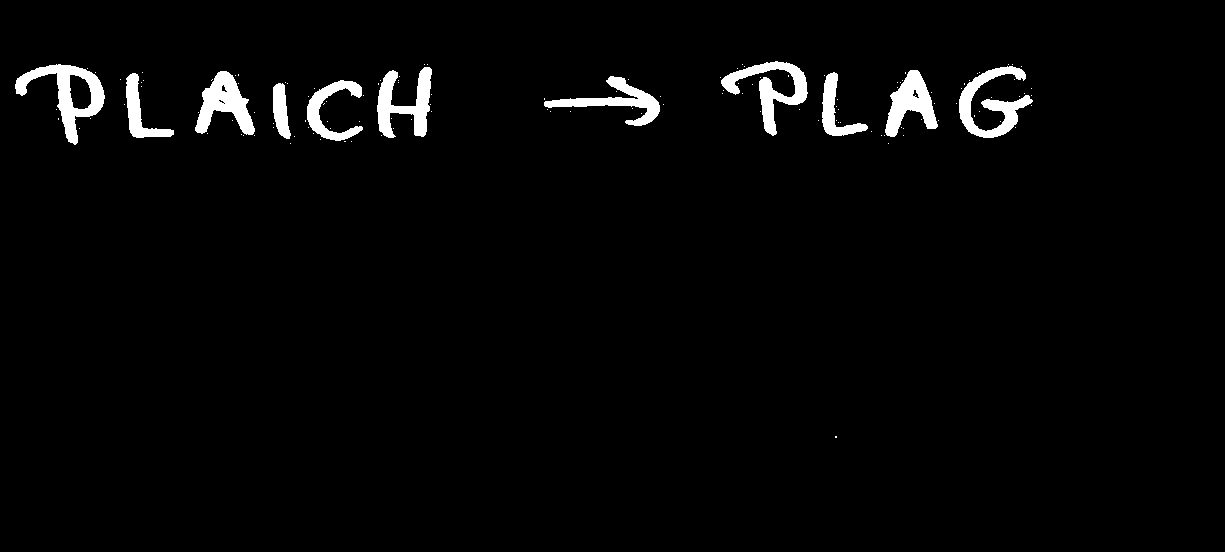 PLAICH → PLAG